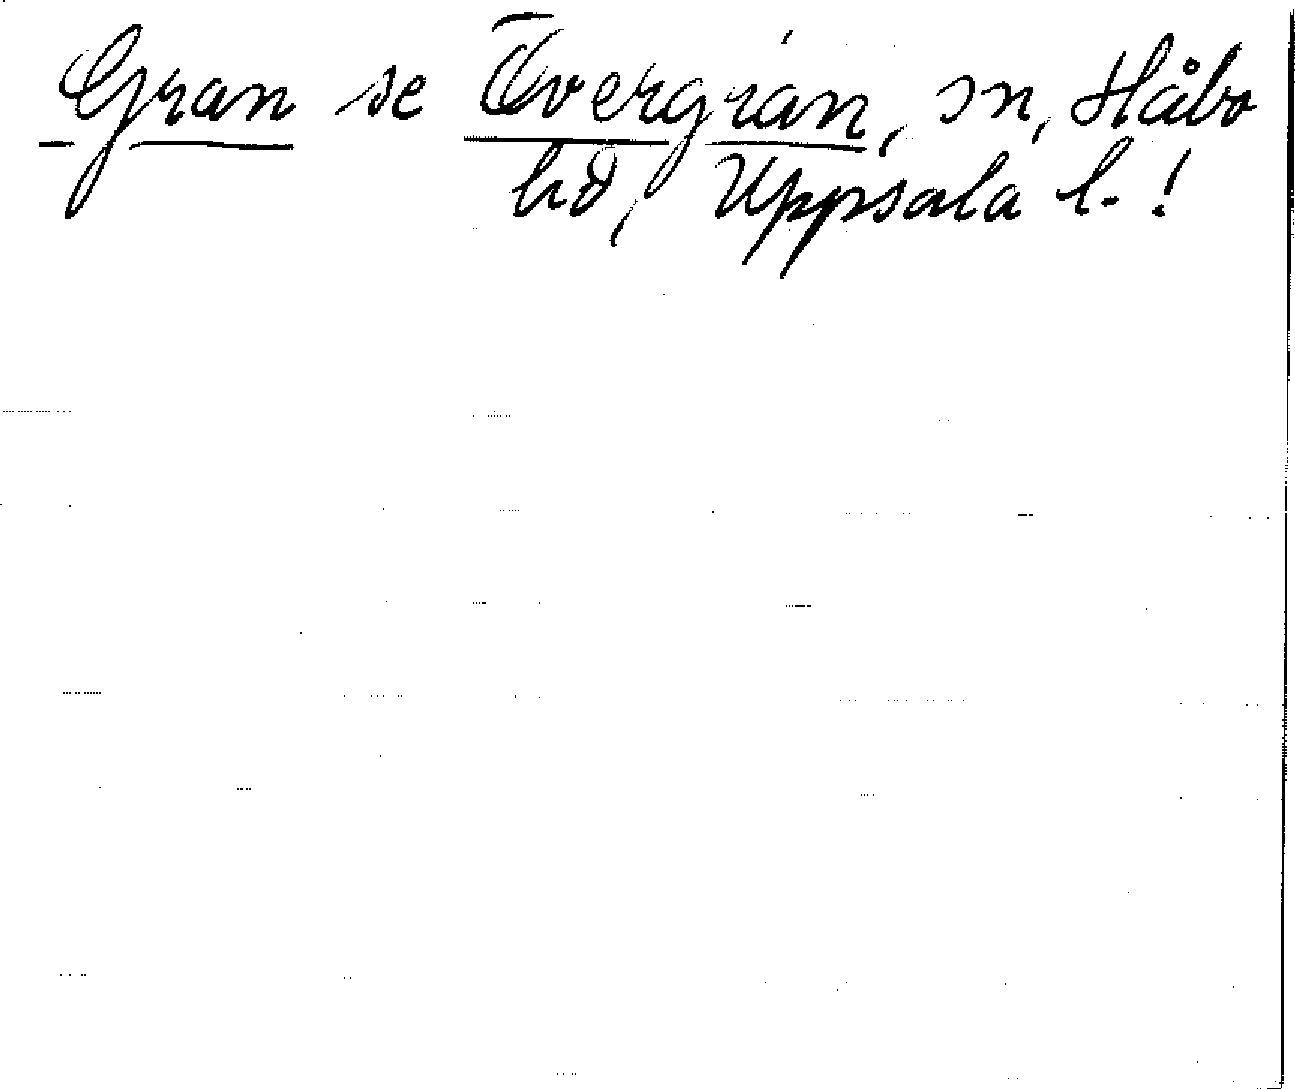 Gran se Övergran, sn, Håbo
hd, Uppsala l. !